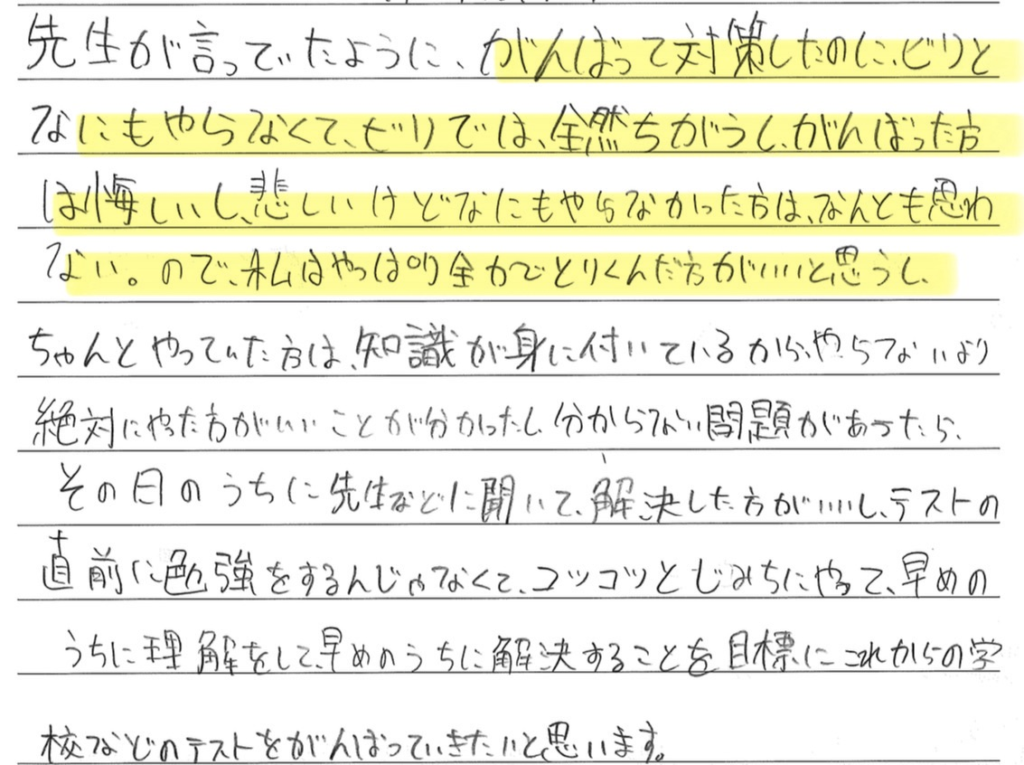 先生が言っていたように、がんばって対策したのに、ビリと
なにもやらなくて、ビリでは、全然ちがうし、がんばった方
は悔しいし、悲しいけどなにもやらなかった方は、なんとも思わ
ない。ので、私はやっぱり全力でとりくんだ方がいいと思うし、
ちゃんとやっていた方は、知識が身に付いているから、やらないより
絶対にやった方がいいことが分かったし、分からない問題があったら、
その日のうちに先生などに聞いて、解決した方がいいし、テストの
直前に勉強をするんじゃなくて、コツコツとじみちにやって、早めの
うちに理解をして、早めのうちに解決することを目標にこれからの学
校などのテストをがんばっていきたいと思います。